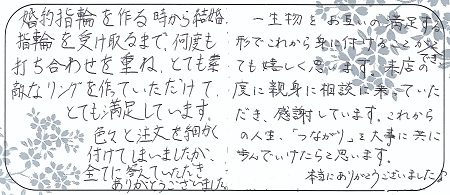 婚約指輪を作る時から結婚
指輪を受け取るまで、何度も
打ち合わせを重ね、とても素
敵なリングを作っていただけて、
とても満足しています。
色々と注文を細かく
付けてしまいましたが、
全てに答えていただき
ありがとうございました。
一生物をお互いの満足する
形でこれから身に付けることができ
ても嬉しく思います。来店の
度に親身に相談に乗っていた
だき、感謝しています。これから
の人生、「つながり」を大事に共に
歩んでいけたらと思います。
本当にありがとうございました♪